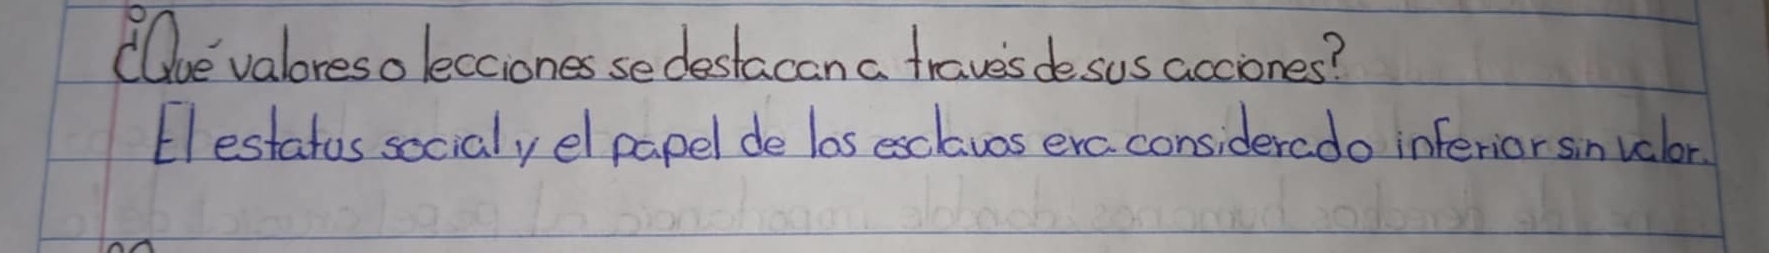 ¿Qué valores o lecciones se destacan a través de sus acciones?
El estatus social y el papel de los esclavos era considerado inferior sin valor.